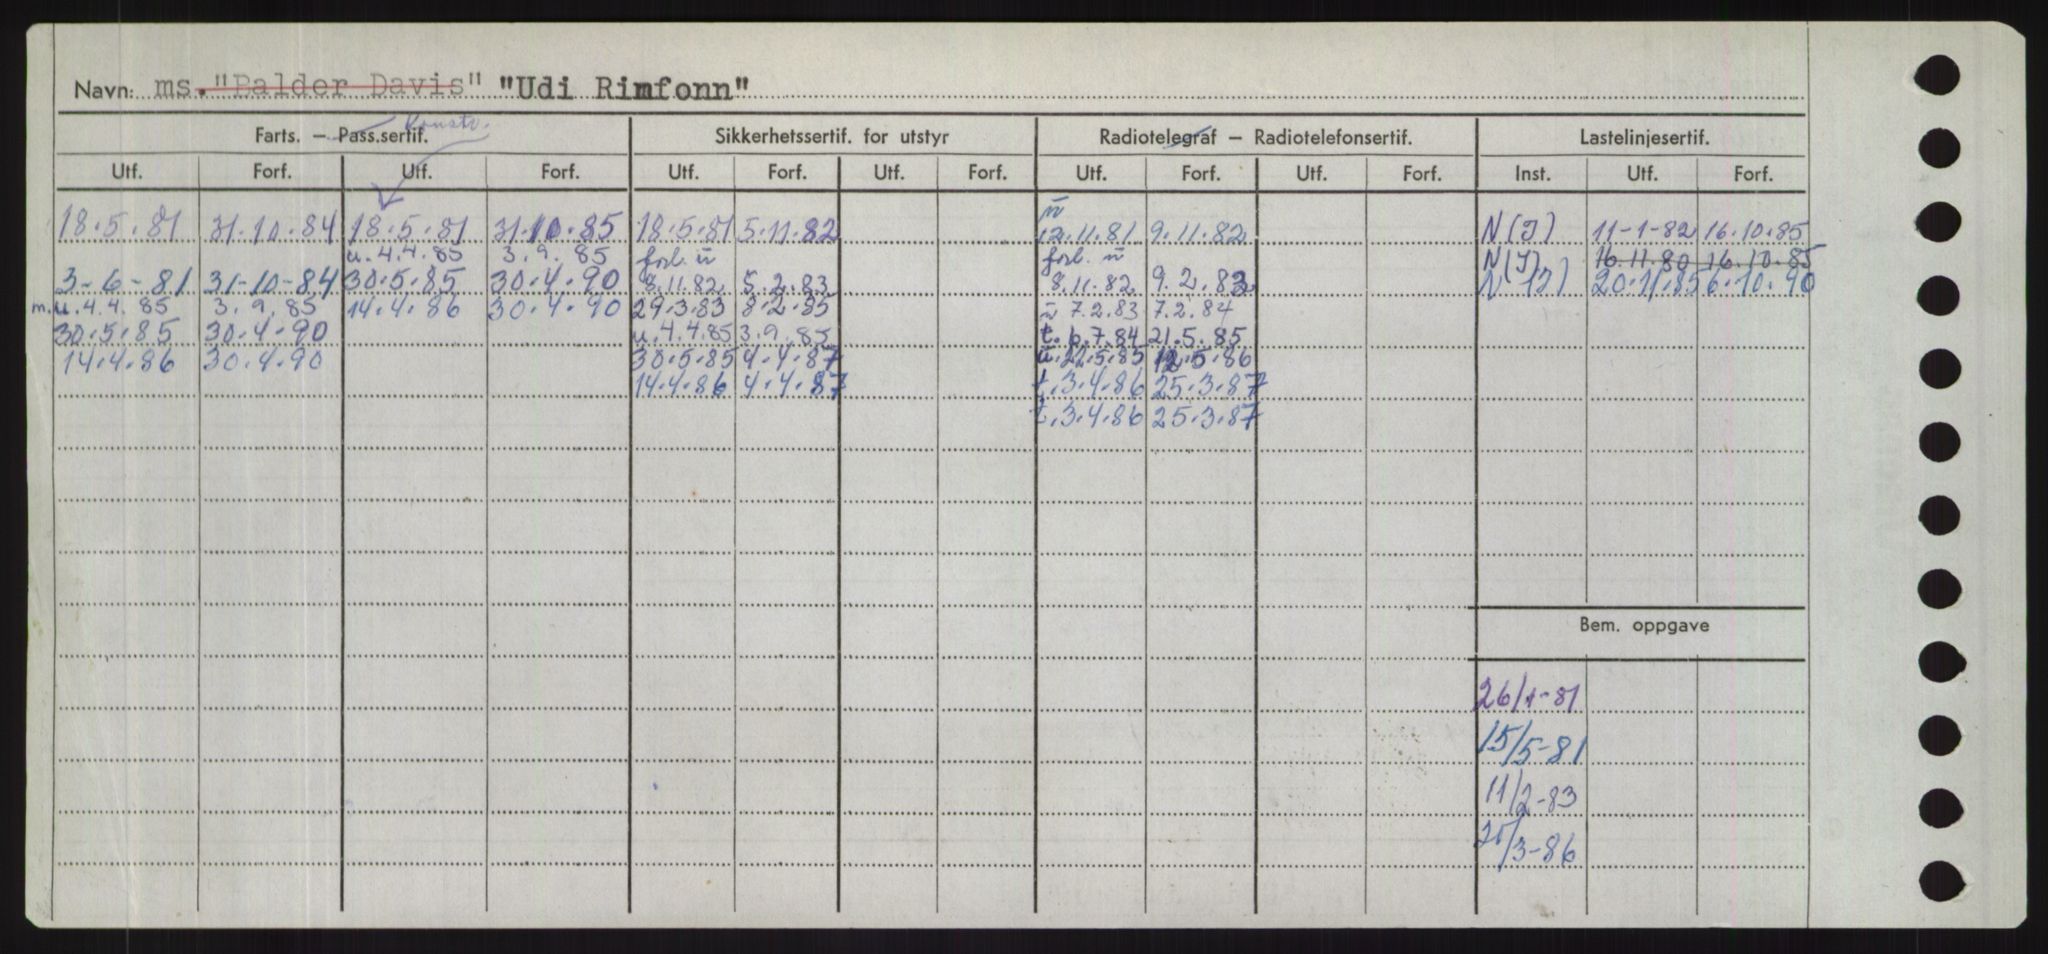 Navn: ms. "Balder Davis" "Udi Rimfonn"
Konstr.
Farts. – Pass.sertif. Sikkerhetssertif. for utstyr Radiotelegraf – Radiotelefonsertif. Lastelinjesertif.
Utf. Forf. Utf. Forf. Utf. Forf. Utf. Forf. Utf. Forf. Utf. Forf. Inst. Utf. Forf.
ū
18.5.81 31.10.84 18.5.81 31.10.85 18.5.81 5.11.82 12.11.81 9.11.82 N(I) 11-1-82 16.10.85
u.4.4.85 3.9.85 forl. ū forl. ū N(I) 16.11.80 16.10.85
3-6-81 31-10-84 30.5.85 30.4.90 8.11.82 5.2.83 8.11.82 9.2.83 20.11.85 6.10.90
m.u.4.4.85 3.9.85 14.4.86 30.4.90 29.3.83 8.2.85 ū 7.2.83 7.2.84
30.5.85 30.4.90 u.4.4.85 3.9.85 t.6.7.84 21.5.85
14.4.86 30.4.90 30.5.85 4.4.87 ū.22.5.85 12.5.86
14.4.86 4.4.87 t.3.4.86 25.3.87
t.3.4.86 25.3.87
Bem. oppgave
26/1-81
15/5-81
11/2-83
/3-86